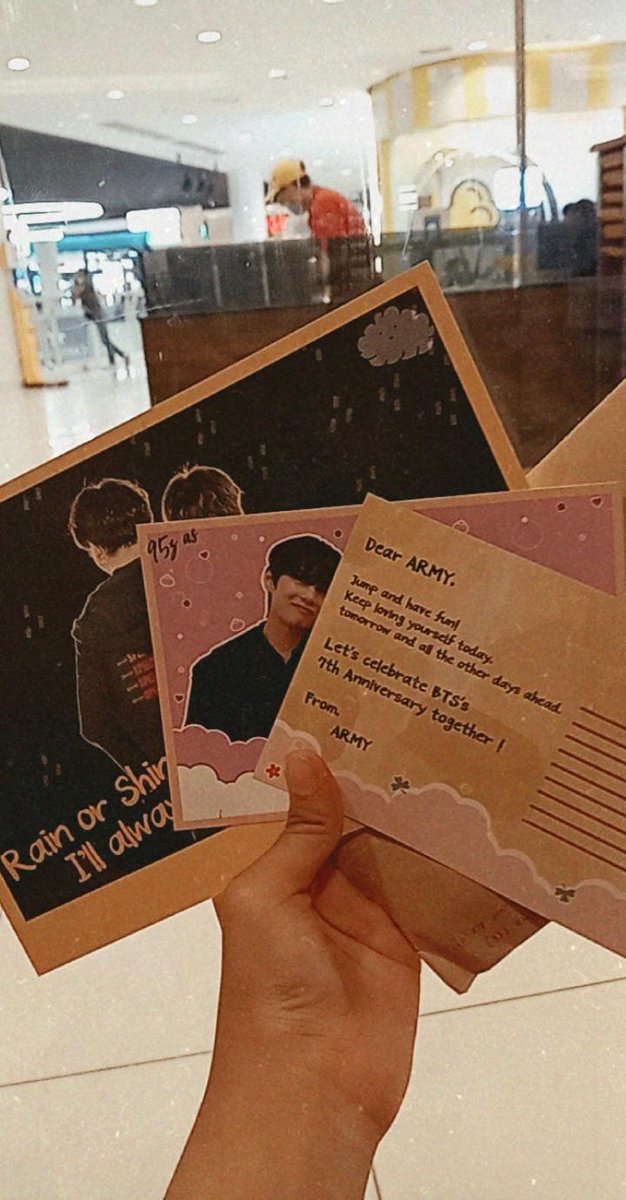 95z as
Dear ARMY,
Jump and have fun!
Keep loving yourself today.
tomorrow and all the other days ahead.
Let's celebrate BTS's
7th Anniversary together !
From,
ARMY
Rain or Shin
I'll alway